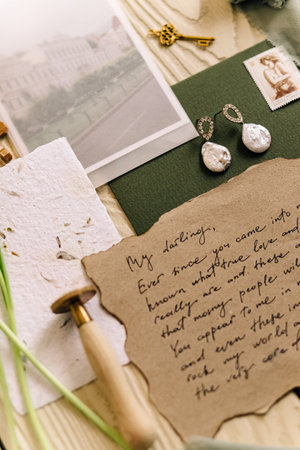 My darling,
Ever since you came into m
known what true love and
really are and these
that money people will
You appear to me in
and even these in
rock my world
the very core